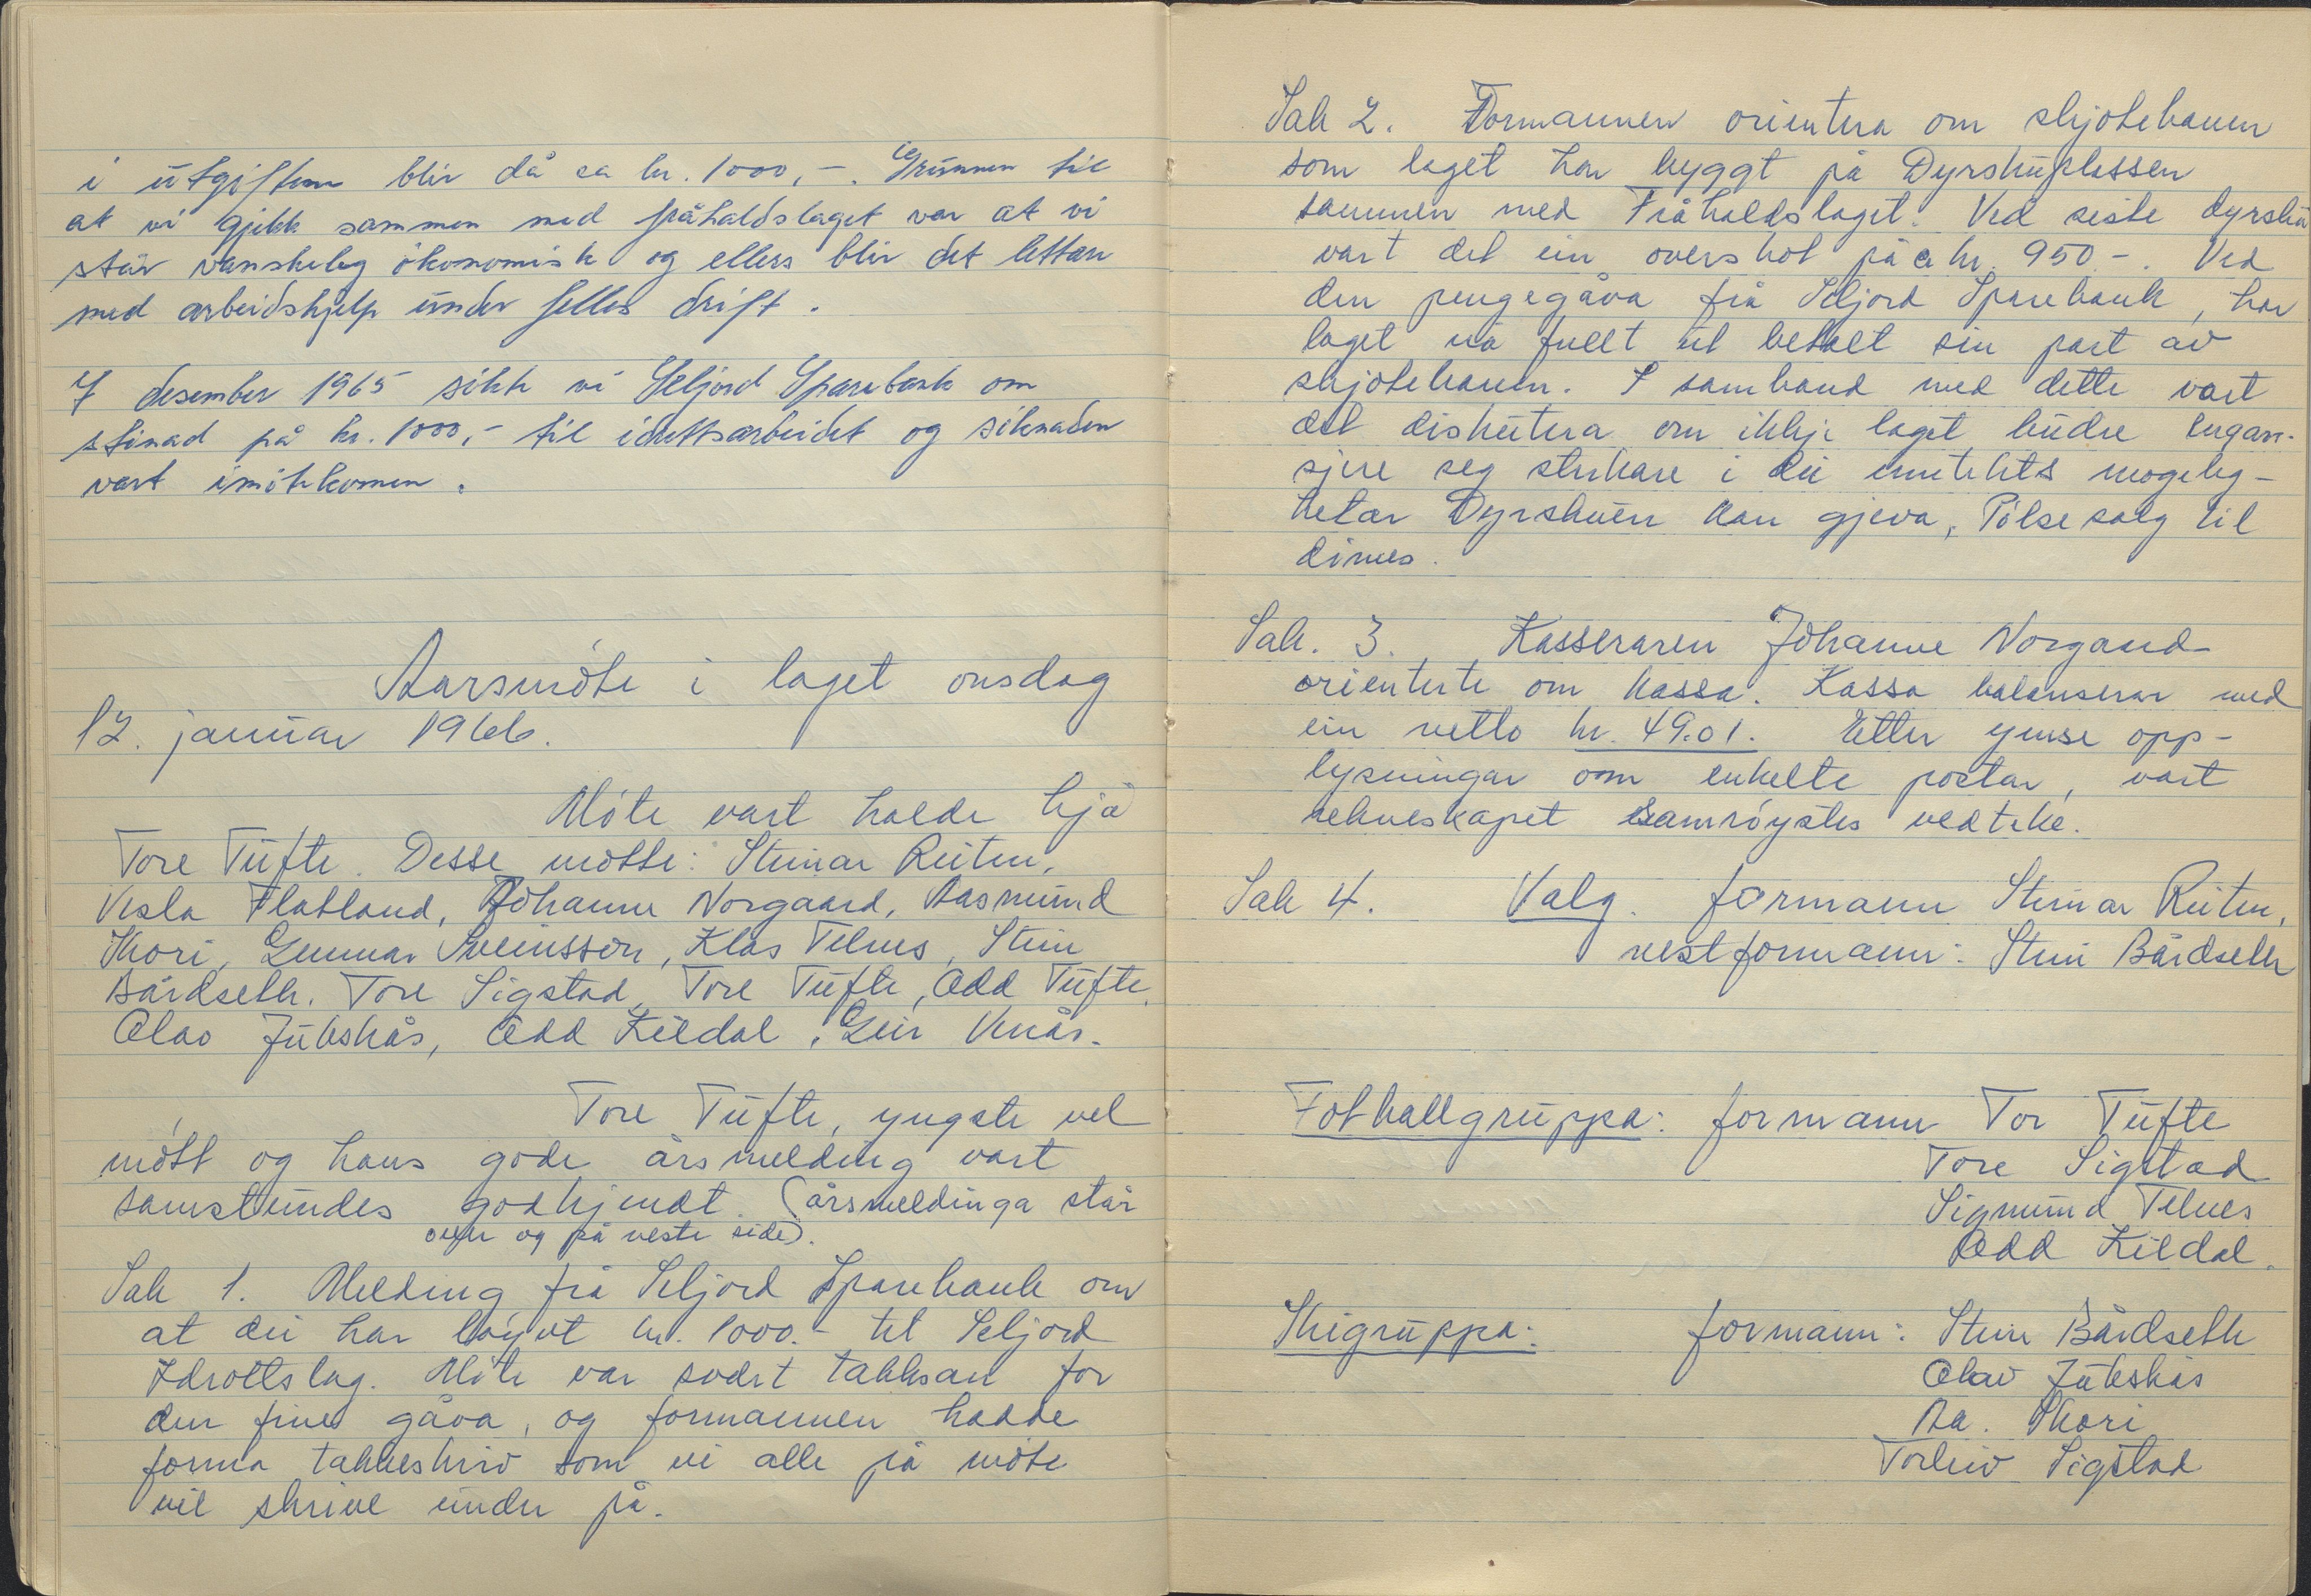 i utgiftene blir då ca kr. 1000,-. Grunnen til
at vi gjekk sammen med fråhaldslaget var at vi
står vanskeleg ökonomisk og ellers blir det lettare
med arbeidshjelp under felles drift.
7 desember 1965 sökk vi Seljord Sparebank om
stönad på kr. 1000,- til idrettsarbeidet og söknaden
vart imötekomen.
Aarsmöte i laget onsdag
12. januar 1966.
Möte vart halde hjå
Tore Tufte. Desse mötte: Steinar Reiten,
Vesla Flatland, Johanne Norgaard, Aasmund
Skori, Gunnar Sveinsson, Klas Telnes, Stein
Bårdseth. Tore Sigstad, Tore Tufte, Odd Tufte,
Olav Jukskås, Odd Kildal, Geir Venås.
Tore Tufte, yngste vel
mött og hans gode årsmelding vart
samstundes godkjendt. (årsmeldinga står
over og på neste side).
Sak 1. Melding frå Seljord Sparebank om
at dei har löyvt kr. 1000.- til Seljord
Idrottslag. Möte var svært takksam for
den fine gåva, og formannen hadde
forma takkeskriv som vi alle på möte
vil skrive under på.
Sak 2. Formannen orientera om skjotebanen
som laget har byggt på Dyrskuplassen
sammen med Fråhaldslaget. Ved siste dyrsku
vart det ein overskot på ca kr. 950.-. Ved
den pengegåva frå Seljord Sparebank, har
laget nå fullt ut betalt sin part av
skjotebanen. I samband med dette vart
det diskutera om ikkje laget burde engasj-
sjere seg sterkare i dei inntekts mogeleg-
hetar Dyrskuen kan gjeva, Pölsesalg til
dömes.
Sak. 3. Kasseraren Johanne Norgaard
orienterte om kassa. Kassa balanserar med
ein netto kr. 49.01. Etter ymse opp-
lysningar om enkelte postar, vart
rekneskapet samröystes vedteke.
Sak 4. Valg. formann Steinar Reiten,
nestformann: Stein Bårdseth
Fotballgruppa: formann Tor Tufte
Tore Sigstad
Sigmund Telnes
Odd Kildal.
Skigruppa: formann: Stein Bårdseth
Olav Jukskås
Aa. Skori
Torleiv Sigstad